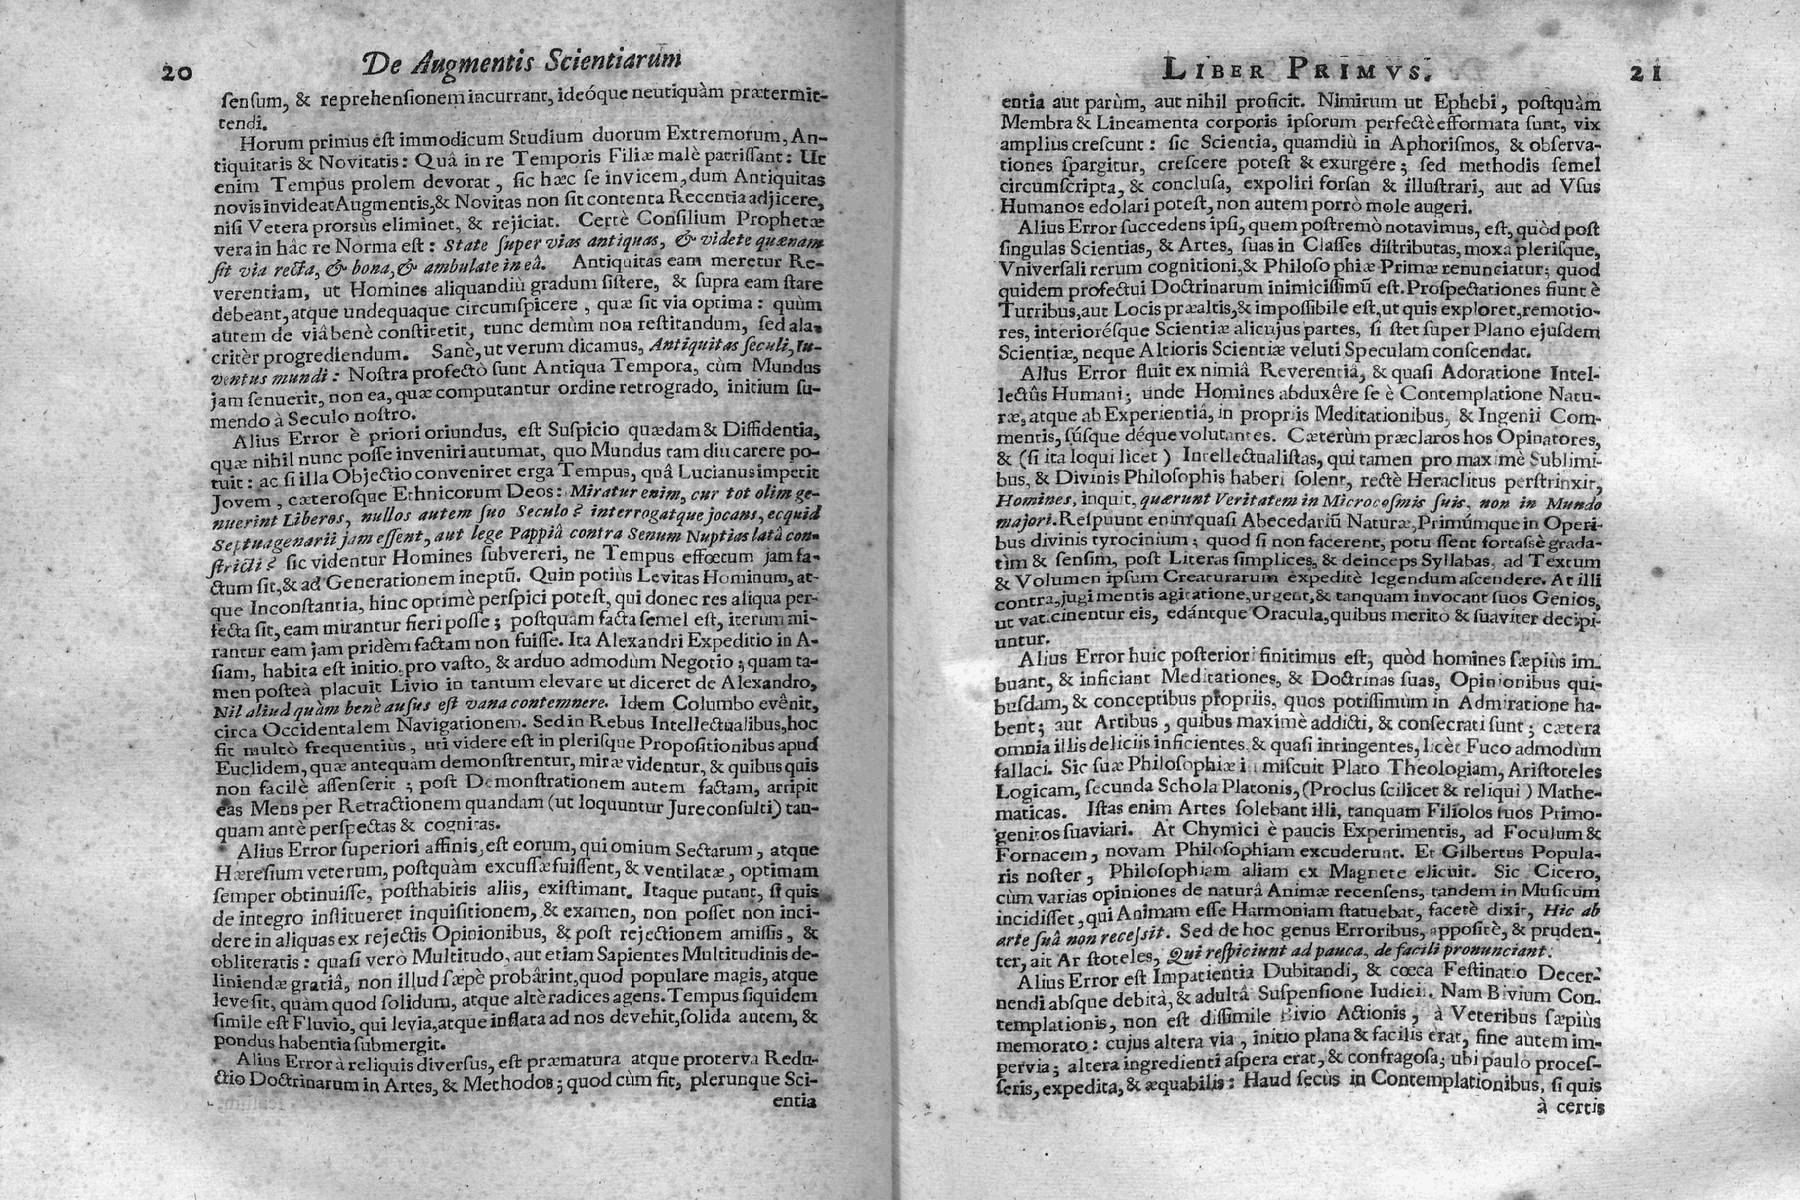 20
De Augmentis Scientiarum
ſenſum, & reprehenſionem incurrant, ideóque neutiquàm prætermit-
tendi.
Horum primus eſt immodicum Studium duorum Extremorum, An-
tiquitatis & Novitatis: Quâ in re Temporis Filiæ malè patriſſant: Ut
enim Tempus prolem devorat, ſic hæc ſe invicem, dum Antiquitas
novis invideat Augmentis, & Novitas non ſit contenta Recentia adjicere,
niſi Vetera prorsus eliminet, & rejiciat. Certè Conſilium Prophetæ
vera in hâc re Norma eſt: State ſuper vias antiquas, & videte quænam
ſit via recta, & bona, & ambulate in eâ. Antiquitas eam meretur Re-
verentiam, ut Homines aliquandiù gradum ſiſtere, & ſupra eam ſtare
debeant, atque undequaque circumſpicere, quæ ſit via optima: quùm
autem de viâ benè conſtiterit, tunc demùm non reſtitandum, ſed ala-
critèr progrediendum. Sanè, ut verum dicamus, Antiquitas ſeculi, Iu-
ventus mundi: Noſtra profectò ſunt Antiqua Tempora, cùm Mundus
jam ſenuerit, non ea, quæ computantur ordine retrogrado, initium ſu-
mendo à Seculo noſtro.
Alius Error è priori oriundus, eſt Suſpicio quædam & Diffidentia,
quæ nihil nunc poſſe inveniri autumat, quo Mundus tam diu carere po-
tuit: ac ſi illa Objectio conveniret erga Tempus, quâ Lucianus impetit
Jovem, cæteroſque Ethnicorum Deos: Miratur enim, cur tot olim ge-
nuerint Liberos, nullos autem ſuo Seculo? interrogatque jocans, ecquid
Septuagenarii jam eſſent, aut lege Pappiâ contra Senum Nuptias latâ con-
ſtricti? ſic videntur Homines ſubvereri, ne Tempus effœtum jam fa-
ctum ſit, & ad Generationem ineptū. Quin potiùs Levitas Hominum, at-
que Inconſtantia, hinc optimè perſpici poteſt, qui donec res aliqua per-
fecta ſit, eam mirantur fieri poſſe; poſtquàm facta ſemel eſt, iterum mi-
rantur eam jam pridèm factam non fuiſſe. Ita Alexandri Expeditio in A-
ſiam, habita eſt initio, pro vaſto, & arduo admodùm Negotio; quam ta-
men poſteà placuit Livio in tantum elevare ut diceret de Alexandro,
Nil aliud quàm benè auſus eſt vana contemnere. Idem Columbo evênit,
circa Occidentalem Navigationem. Sed in Rebus Intellectualibus, hoc
fit multò frequentiùs, uti videre eſt in pleriſque Propoſitionibus apud
Euclidem, quæ antequàm demonſtrentur, miræ videntur, & quibus quis
non facilè aſſenſerit; poſt Demonſtrationem autem factam, arripit
eas Mens per Retractionem quandam (ut loquuntur Jureconſulti) tan-
quam antè perſpectas & cognitas.
Alius Error ſuperiori affinis, eſt eorum, qui omium Sectarum, atque
Hæreſium veterum, poſtquàm excuſſæ fuiſſent, & ventilatæ, optimam
ſemper obtinuiſſe, poſthabitis aliis, exiſtimant. Itaque putant, ſi quis
de integro inſtitueret inquiſitionem, & examen, non poſſet non inci-
dere in aliquas ex rejectis Opinionibus, & poſt rejectionem amiſſis, &
obliteratis: quaſi verò Multitudo, aut etiam Sapientes Multitudinis de-
liniendæ gratiâ, non illud ſæpè probârint, quod populare magis, atque
leve ſit, quàm quod ſolidum, atque altè radices agens. Tempus ſiquidem
ſimile eſt Fluvio, qui levia, atque inflata ad nos devehit, ſolida autem, &
pondus habentia ſubmergit.
Alius Error à reliquis diverſus, eſt præmatura atque proterva Redu-
ctio Doctrinarum in Artes, & Methodos; quod cùm fit, plerunque Sci-
entia
LIBER PRIMVS.
21
entia aut parùm, aut nihil proficit. Nimirum ut Ephebi, poſtquàm
Membra & Lineamenta corporis ipſorum perfectè efformata ſunt, vix
amplius creſcunt: ſic Scientia, quamdiù in Aphoriſmos, & obſerva-
tiones ſpargitur, creſcere poteſt & exurgere; ſed methodis ſemel
circumſcripta, & concluſa, expoliri forſan & illuſtrari, aut ad Vſus
Humanos edolari poteſt, non autem porrò mole augeri.
Alius Error ſuccedens ipſi, quem poſtremò notavimus, eſt, quòd poſt
ſingulas Scientias, & Artes, ſuas in Claſſes diſtributas, mox à pleriſque,
Vniverſali rerum cognitioni, & Philoſophiæ Primæ renunciatur; quod
quidem profectui Doctrinarum inimiciſſimū eſt. Proſpectationes fiunt è
Turribus, aut Locis præaltis, & impoſſibile eſt, ut quis exploret, remotio-
res, interioréſque Scientiæ alicujus partes, ſi ſtet ſuper Plano ejuſdem
Scientiæ, neque Altioris Scientiæ veluti Speculam conſcendat.
Alius Error fluit ex nimiâ Reverentiâ, & quaſi Adoratione Intel-
lectûs Humani; unde Homines abduxêre ſe è Contemplatione Natu-
ræ, atque ab Experientiâ, in propriis Meditationibus, & Ingenii Com-
mentis, ſúſque déque volutantes. Cæterùm præclaros hos Opinatores,
& (ſi ita loqui licet) Intellectualiſtas, qui tamen pro maximè Sublimi-
bus, & Divinis Philoſophis haberi ſolent, rectè Heraclitus perſtrinxit,
Homines, inquit, quærunt Veritatem in Microcoſmis ſuis, non in Mundo
majori. Reſpuunt enim quaſi Abecedariū Naturæ, Primúmque in Operi-
bus divinis tyrocinium; quod ſi non facerent, potuiſſent fortaſsè grada-
tìm & ſenſim, poſt Literas ſimplices, & deinceps Syllabas, ad Textum
& Volumen ipſum Creaturarum expeditè legendum aſcendere. At illi
contra, jugi mentis agitatione, urgent, & tanquam invocant ſuos Genios,
ut vaticinentur eis, edántque Oracula, quibus meritò & ſuaviter decipi-
untur.
Alius Error huic poſteriori finitimus eſt, quòd homines ſæpiùs im-
buant, & inficiant Meditationes, & Doctrinas ſuas, Opinionibus qui-
buſdam, & conceptibus propriis, quos potiſſimùm in Admiratione ha-
bent; aut Artibus, quibus maximè addicti, & conſecrati ſunt; cætera
omnia illis deliciis inficientes, & quaſi intingentes, licèt Fuco admodùm
fallaci. Sic ſuæ Philoſophiæ immiſcuit Plato Theologiam, Ariſtoteles
Logicam, ſecunda Schola Platonis, (Proclus ſcilicet & reliqui) Mathe-
maticas. Iſtas enim Artes ſolebant illi, tanquam Filiolos ſuos Primo-
genitos ſuaviari. At Chymici è paucis Experimentis, ad Foculum &
Fornacem, novam Philoſophiam excuderunt. Et Gilbertus Popula-
ris noſter, Philoſophiam aliam ex Magnete elicuit. Sic Cicero,
cùm varias opiniones de naturâ Animæ recenſens, tandem in Muſicum
incidiſſet, qui Animam eſſe Harmoniam ſtatuebat, facetè dixit, Hic ab
arte ſuâ non receſsit. Sed de hoc genus Erroribus, appoſitè, & pruden-
ter, ait Ariſtoteles, Qui reſpiciunt ad pauca, de facili pronunciant.
Alius Error eſt Impatientia Dubitandi, & cœca Feſtinatio Decer-
nendi abſque debitâ, & adultâ Suſpenſione Iudicii. Nam Bivium Con-
templationis, non eſt diſſimile Bivio Actionis, à Veteribus ſæpiùs
memorato: cujus altera via, initio plana & facilis erat, fine autem im-
pervia; altera ingredienti aſpera erat, & confragoſa; ubi paulò proceſ-
ſeris, expedita, & æquabilis: Haud ſecus in Contemplationibus, ſi quis
à certis